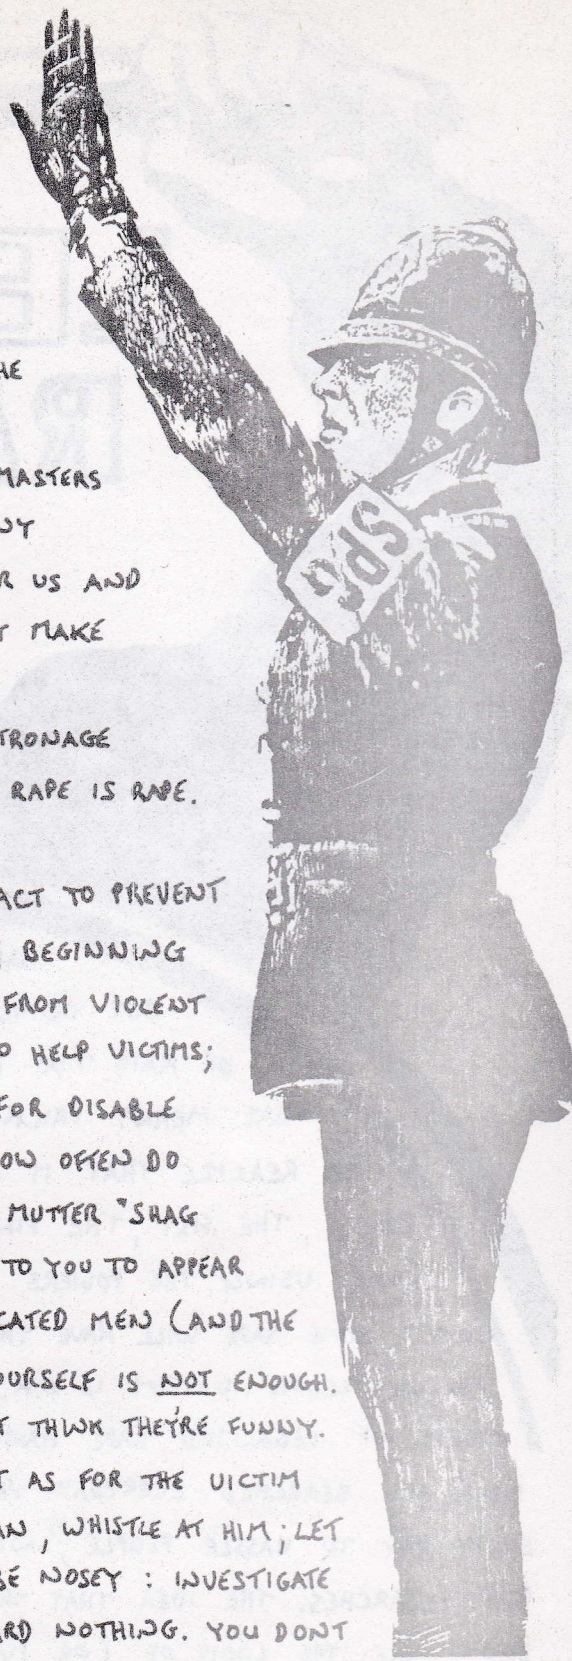 HE
MASTERS
NY
R US AND
T MAKE
TRONAGE
RAPE IS RAPE.
ACT TO PREVENT
BEGINNING
FROM VIOLENT
O HELP VICTIMS;
FOR DISABLE
OW OFTEN DO
MUTTER "SHAG
TO YOU TO APPEAR
CATED MEN (AND THE
OURSELF IS NOT ENOUGH.
T THINK THEY'RE FUNNY.
T AS FOR THE VICTIM
AN, WHISTLE AT HIM; LET
BE NOSEY : INVESTIGATE
RD NOTHING. YOU DONT
SPG